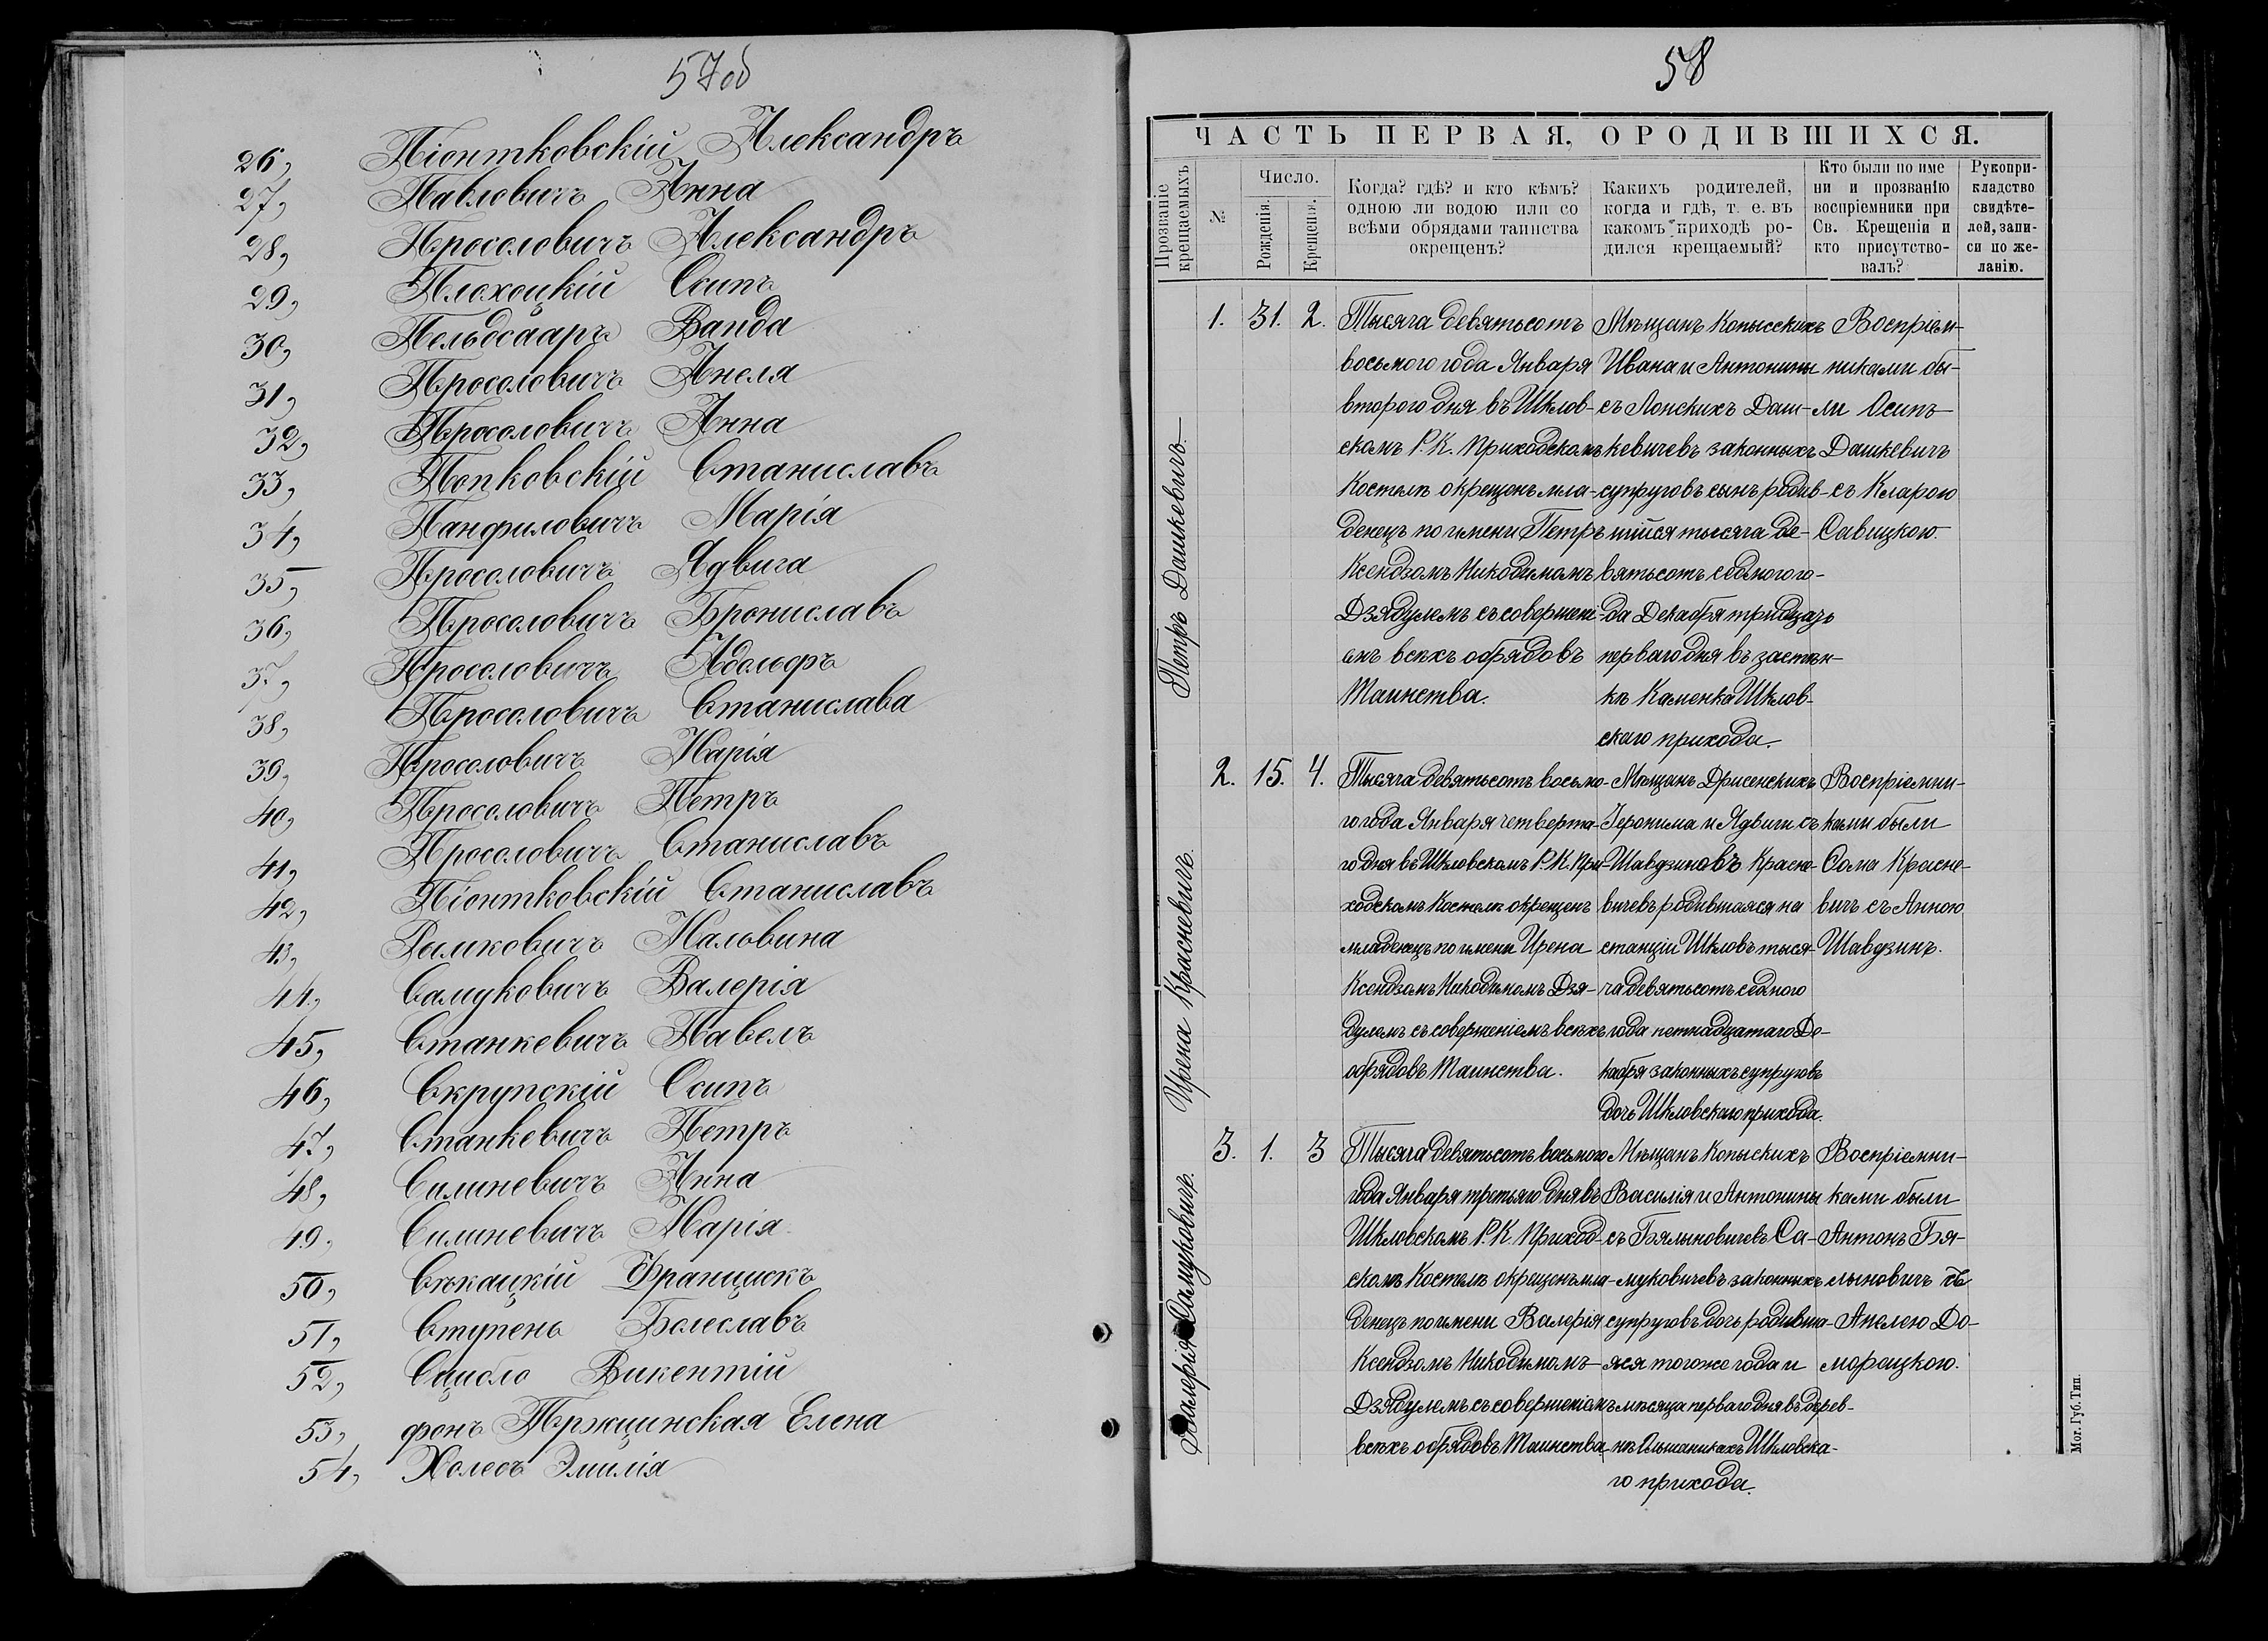 57об
26, Піонтковскій Александръ
27, Павловичъ Анна
28, Просоловичъ Александръ
29, Плохоцкій Осипъ
30, Пельдсааръ Ванда
31, Просоловичъ Анеля
32, Просоловичъ Анна
33, Попковскій Станиславъ
34, Панфиловичъ Марія
35, Просоловичъ Ядвига
36, Просоловичъ Брониславъ
37, Просоловичъ Адольфъ
38, Просоловичъ Станислава
39, Просоловичъ Марія
40, Просоловичъ Петръ
41, Просоловичъ Станиславъ
42, Піонтковскій Станиславъ
43, Рымковичъ Мальвина
44, Самуковичъ Валерія
45, Станкевичъ Павелъ
46, Скрупскій Осипъ
47, Станкевичъ Петръ
48, Силиневичъ Анна
49, Силиневичъ Марія
50, Сѣкацкій Францискъ
51, Ступень Болеславъ
52, Сцибло Викентій
53, фонъ Пржцинская Елена
54, Холесъ Эмилія
58
ЧАСТЬ ПЕРВАЯ, О РОДИВШИХСЯ.
Прозваніе крещаемыхъ
№
Число.
Рожденія.
Крещенія.
Когда? гдѣ? и кто кѣмъ?
одною ли водою или со
всѣми обрядами таинства
окрещенъ?
Какихъ родителей,
когда и гдѣ, т. е. въ
какомъ приходѣ ро-
дился крещаемый?
Кто были по име
ни и прозванію
воспріемники при
Св. Крещеніи и
кто присутство-
валъ?
Рукопри-
кладство
свидѣте-
лей, запи-
си по же-
ланію.
Петръ Дашкевичъ.
1. 31. 2.
Тысяча девятьсотъ
восьмого года Января
второго дня въ Шклов-
скомъ Р. К. Приходскомъ
Костелѣ окрещонъ мла-
денецъ по имени Петръ
Ксендзомъ Никодимомъ
Дзядулемъ съ совершені-
емъ всѣхъ обрядовъ
Таинства.
Мѣщанъ Копысскихъ
Ивана и Антонины
съ Лонскихъ Даш-
кевичевъ законныхъ
супруговъ сынъ родив-
шійся тысяча де-
вятьсотъ седмого го-
да Декабря тридцать
перваго дня въ застѣн-
кѣ Каменка Шклов-
скаго прихода.
Воспріем-
никами бы-
ли Осипъ
Дашкевичъ
съ Кларою
Савицкою.
Ирена Красневичъ.
2. 15. 4.
Тысяча девятьсотъ восьмо-
го года Января четверта-
го дня въ Шкловскомъ Р. К. При-
ходскомъ Костелѣ окрещенъ
младенецъ по имени Ирена
Ксендзомъ Никодимомъ Дзя-
дулемъ съ совершеніемъ всѣхъ
обрядовъ Таинства.
Мѣщанъ Дрисенскихъ
Іеронима и Ядвиги съ
Шавдзиновъ Красне-
вичевъ родившаяся на
станціи Шкловъ тыся-
ча девятьсотъ седмого
года петнадцатаго Де-
кабря законныхъ супруговъ
дочь Шкловскаго прихода.
Воспріемни-
ками были
Сома Красне-
вичъ съ Анною
Шавдзинъ.
Валерія Самуковичъ.
3. 1. 3
Тысяча девятьсотъ восьмого
года Января третьяго дня въ
Шкловскомъ Р. К. Приход-
скомъ Костелѣ окрещенъ мла-
денецъ по имени Валерія
Ксендзомъ Никодимомъ
Дзядулемъ съ совершеніемъ
всѣхъ обрядовъ Таинства
Мѣщанъ Копыскихъ
Василія и Антонины
съ Бялыновичевъ Са-
муковичевъ законныхъ
супруговъ дочь родивша-
яся тогоже года и
мѣсяца перваго дня въ дерев-
нѣ Ольшаникахъ Шкловска-
го прихода.
Воспріемни-
ками были
Антонъ Бя-
лыновичъ съ
Анелею До-
морацкою.
Мог. Губ. Тип.